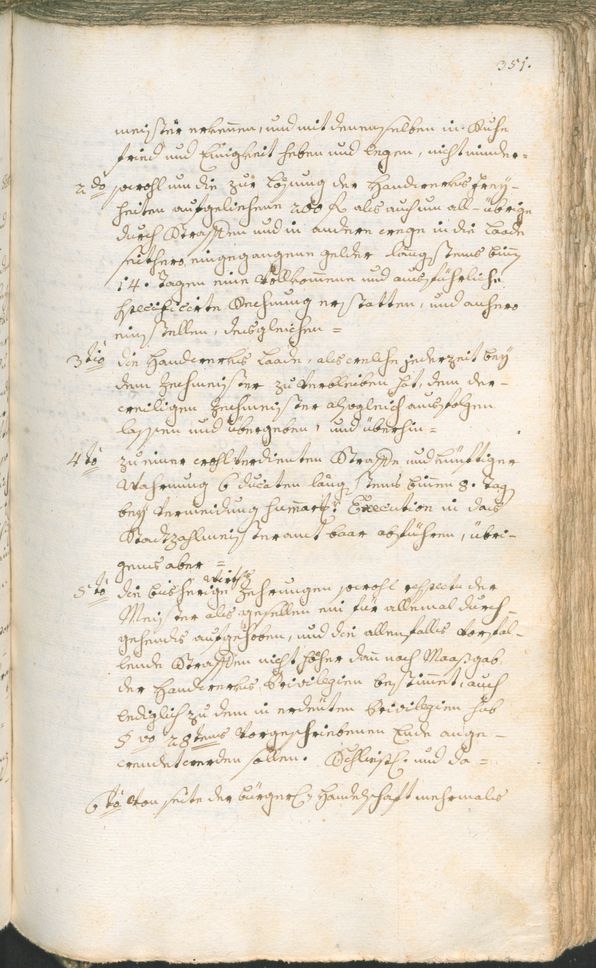 351.
meister erkennen, und mit denenselben in Ruhe
fried und Einigkeit heben und legen, nicht minder=
2do sowohl um die zur Lösung der Handwerks frey-
heiten aufgeliehene 200 f. als auch um all-übrige
durch Straffen und in andere weege in die Laade
seithero eingegangene gelder längstens binn
14. Tagen eine Vollkommene und ausführliche
specificirte Rechnung erstatten, und anhero
einstellen, desgleichen =
3tio die Handwerks Laade, als welche jederzeit bey
dem Zechmeister zu verbleiben hat, dem der-
weiligen Zechmeister alsogleich ausfolgen
lassen und übergeben, und überhin=
4to zu einer wohlverdienten Straffe und künftiger
Wahrnung 6 Ducaten längstens binen 8. Tag
bey Vermeidung Execution in das
Stadtzahlmeisteramt baar abführen, übri-
gens aber =
5to die bisherige Wirths Zehrungen sowohl respectu der
Meister als gesellen ein für allemal durch-
gehends aufgehoben, und die allenfalls vorfal-
lende Straffen nicht höher dann nach Maaßgab
der Handwerks Privilegien bestimmet, auch
lediglich zu dem in erdeuten Privilegien sub
§vo 28tens Vorgeschriebenen Ende ange-
wendet werden sollen. und da=
6to Von seite der bürgerl. Handelschaft mehrmals